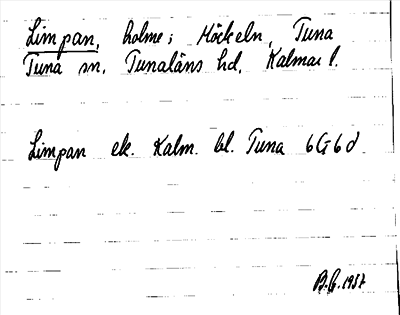 Limpan, holme i Möckeln, Tuna
Tuna sn, Tunaläns hd, Kalmar l.
Limpan ek. Kalm. bl. Tuna 6G6d
B.G. 1937